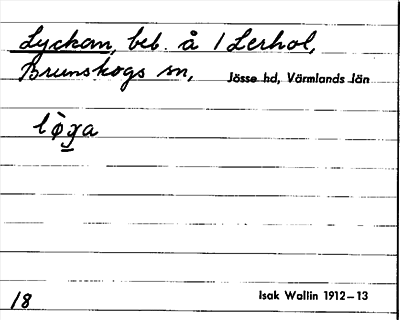 Lyckan, beb. å 1 Lerhol,
Brunskogs sn, Jösse hd, Värmlands län
lø̀ɣa
18 Isak Wallin 1912–13